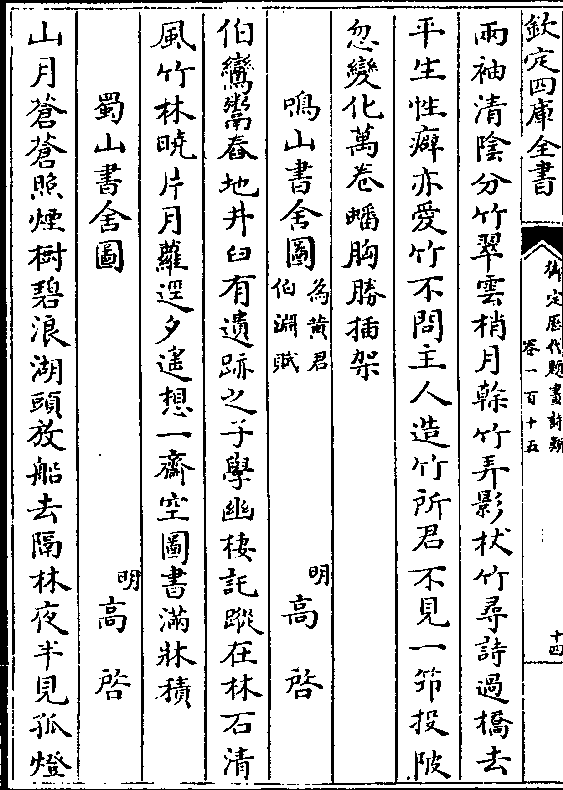 欽定四庫全書
御定歷代題畫詩類
卷一百十五
十四
兩袖清陰分竹翠雲梢月榦竹弄影杖竹尋詩過橋去
平生性癖亦愛竹不問主人造竹所君不見一笻投陂
忽變化萬卷蟠胸勝插架
鳴山書舍圖 為黃君
伯淵賦
明 高啓
伯鸞鬻舂地井臼有遺跡之子學幽棲託蹤在林石清
風竹林曉片月蘿逕夕遙想一齋空圖書滿牀積
蜀山書舍圖
明 高啓
山月蒼蒼照煙樹碧浪湖頭放船去隔林夜半見孤燈